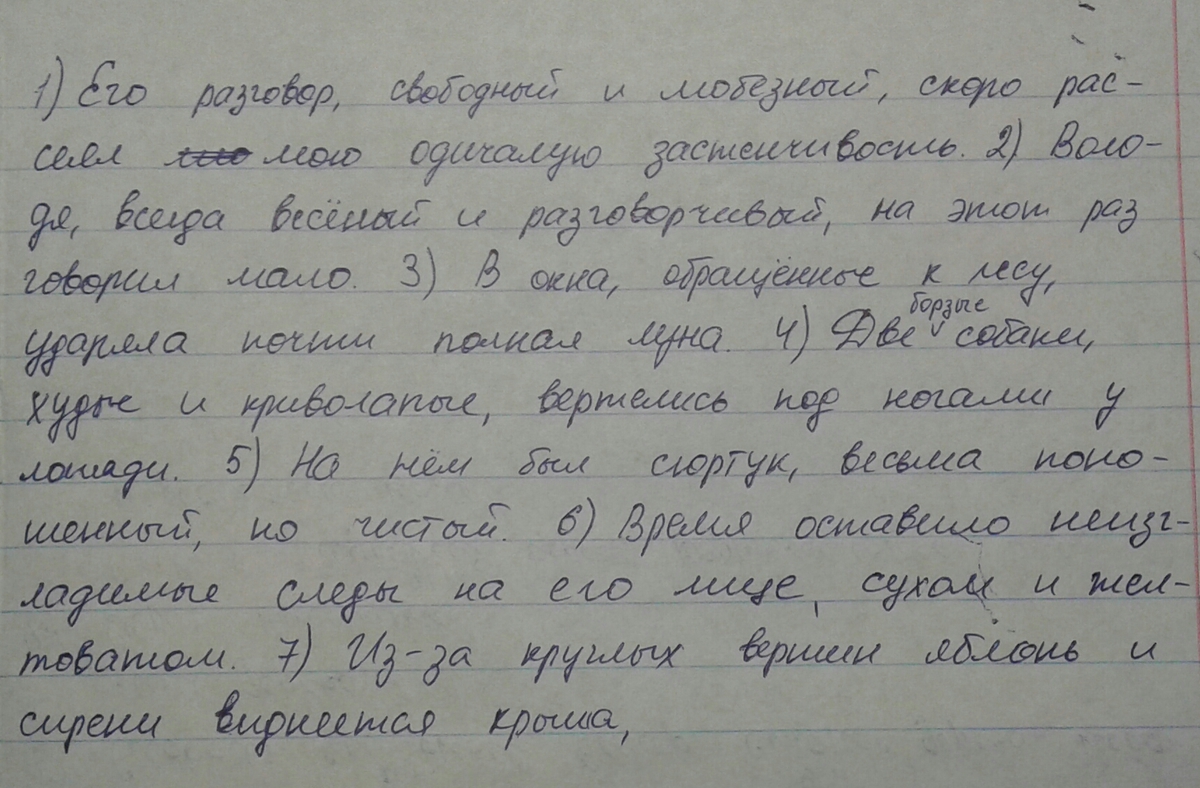 1) Его разговор, свободный и любезный, скоро рас-
сеял мою одичалую застенчивость. 2) Воло-
дя, всегда весёлый и разговорчивый, на этот раз
говорил мало. 3) В окна, обращённые к лесу,
ударяла почти полная луна. 4) Две борзые собаки,
худые и криволапые, вертелись под ногами у
лошади. 5) На нём был сюртук, весьма поно-
шенный, но чистый. 6) Время оставило неизг-
ладимые следы на его лице, сухом и жел-
товатом. 7) Из-за круглых вершин яблонь и
сирени виднеется крыша,